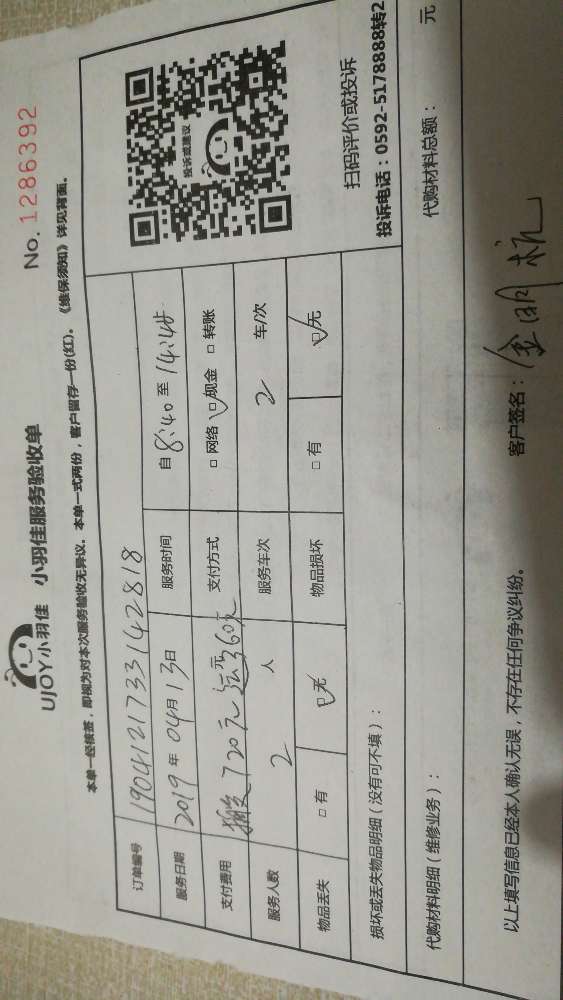 UJOY小羽佳 小羽佳服务验收单
No. 1286392
本单一经核签，即视为对本次服务验收无异议。本单一式两份，客户留存一份(红)。《维保须知》详见背面。
订单编号 190412173314 2818
服务日期 2019 年 04 月 13 日 服务时间 自 8:40 至 14:48
支付费用 720元 360元 元 支付方式 □ 网络 □ 现金 □ 转账
服务人数 2 人 服务车次 2 车/次
物品丢失 □ 有 □ 无 物品损坏 □ 有 □ 无
投诉或建议
扫码评价或投诉
投诉电话：0592-5178888转2
损坏或丢失物品明细（没有可不填）：
代购材料明细（维修业务）： 代购材料总额： 元
以上填写信息已经本人确认无误，不存在任何争议纠纷。 客户签名：金明